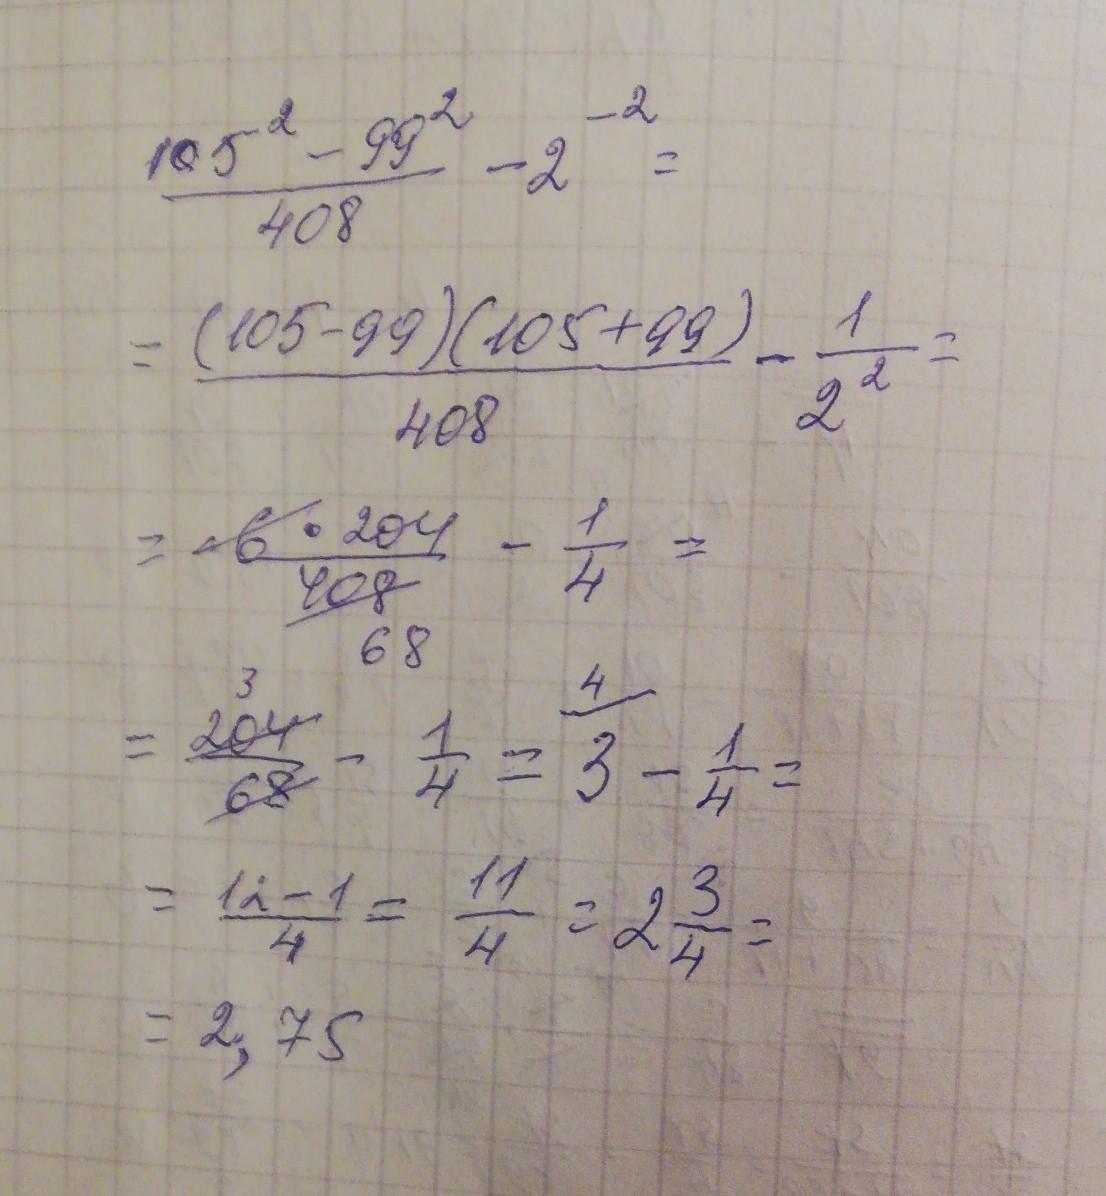 (105² - 99²)/408 - 2⁻² =
= (105-99)(105+99)/408 - 1/2² =
= 6 · 204/408 - 1/4 =
68
3 4
= 204/68 - 1/4 = 3 - 1/4 =
= 12-1/4 = 11/4 = 2 3/4 =
= 2,75